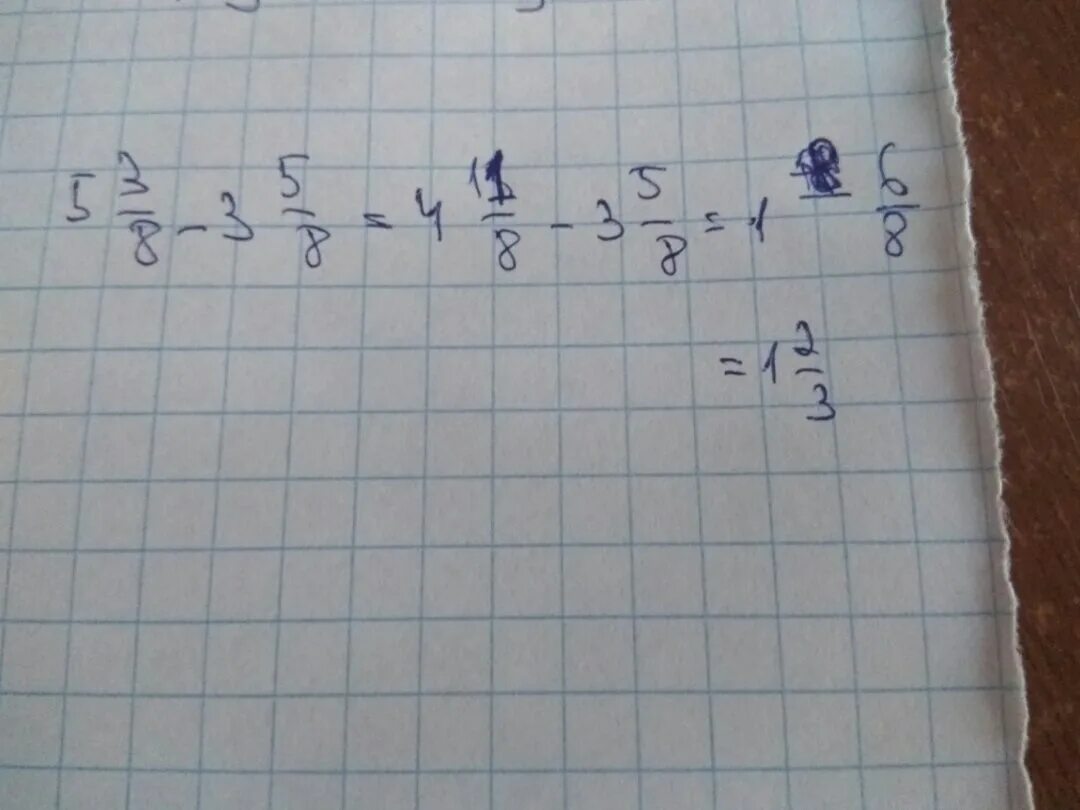 5 3/8 - 3 5/8 = 4 11/8 - 3 5/8 = 1 6/8
= 1 2/3